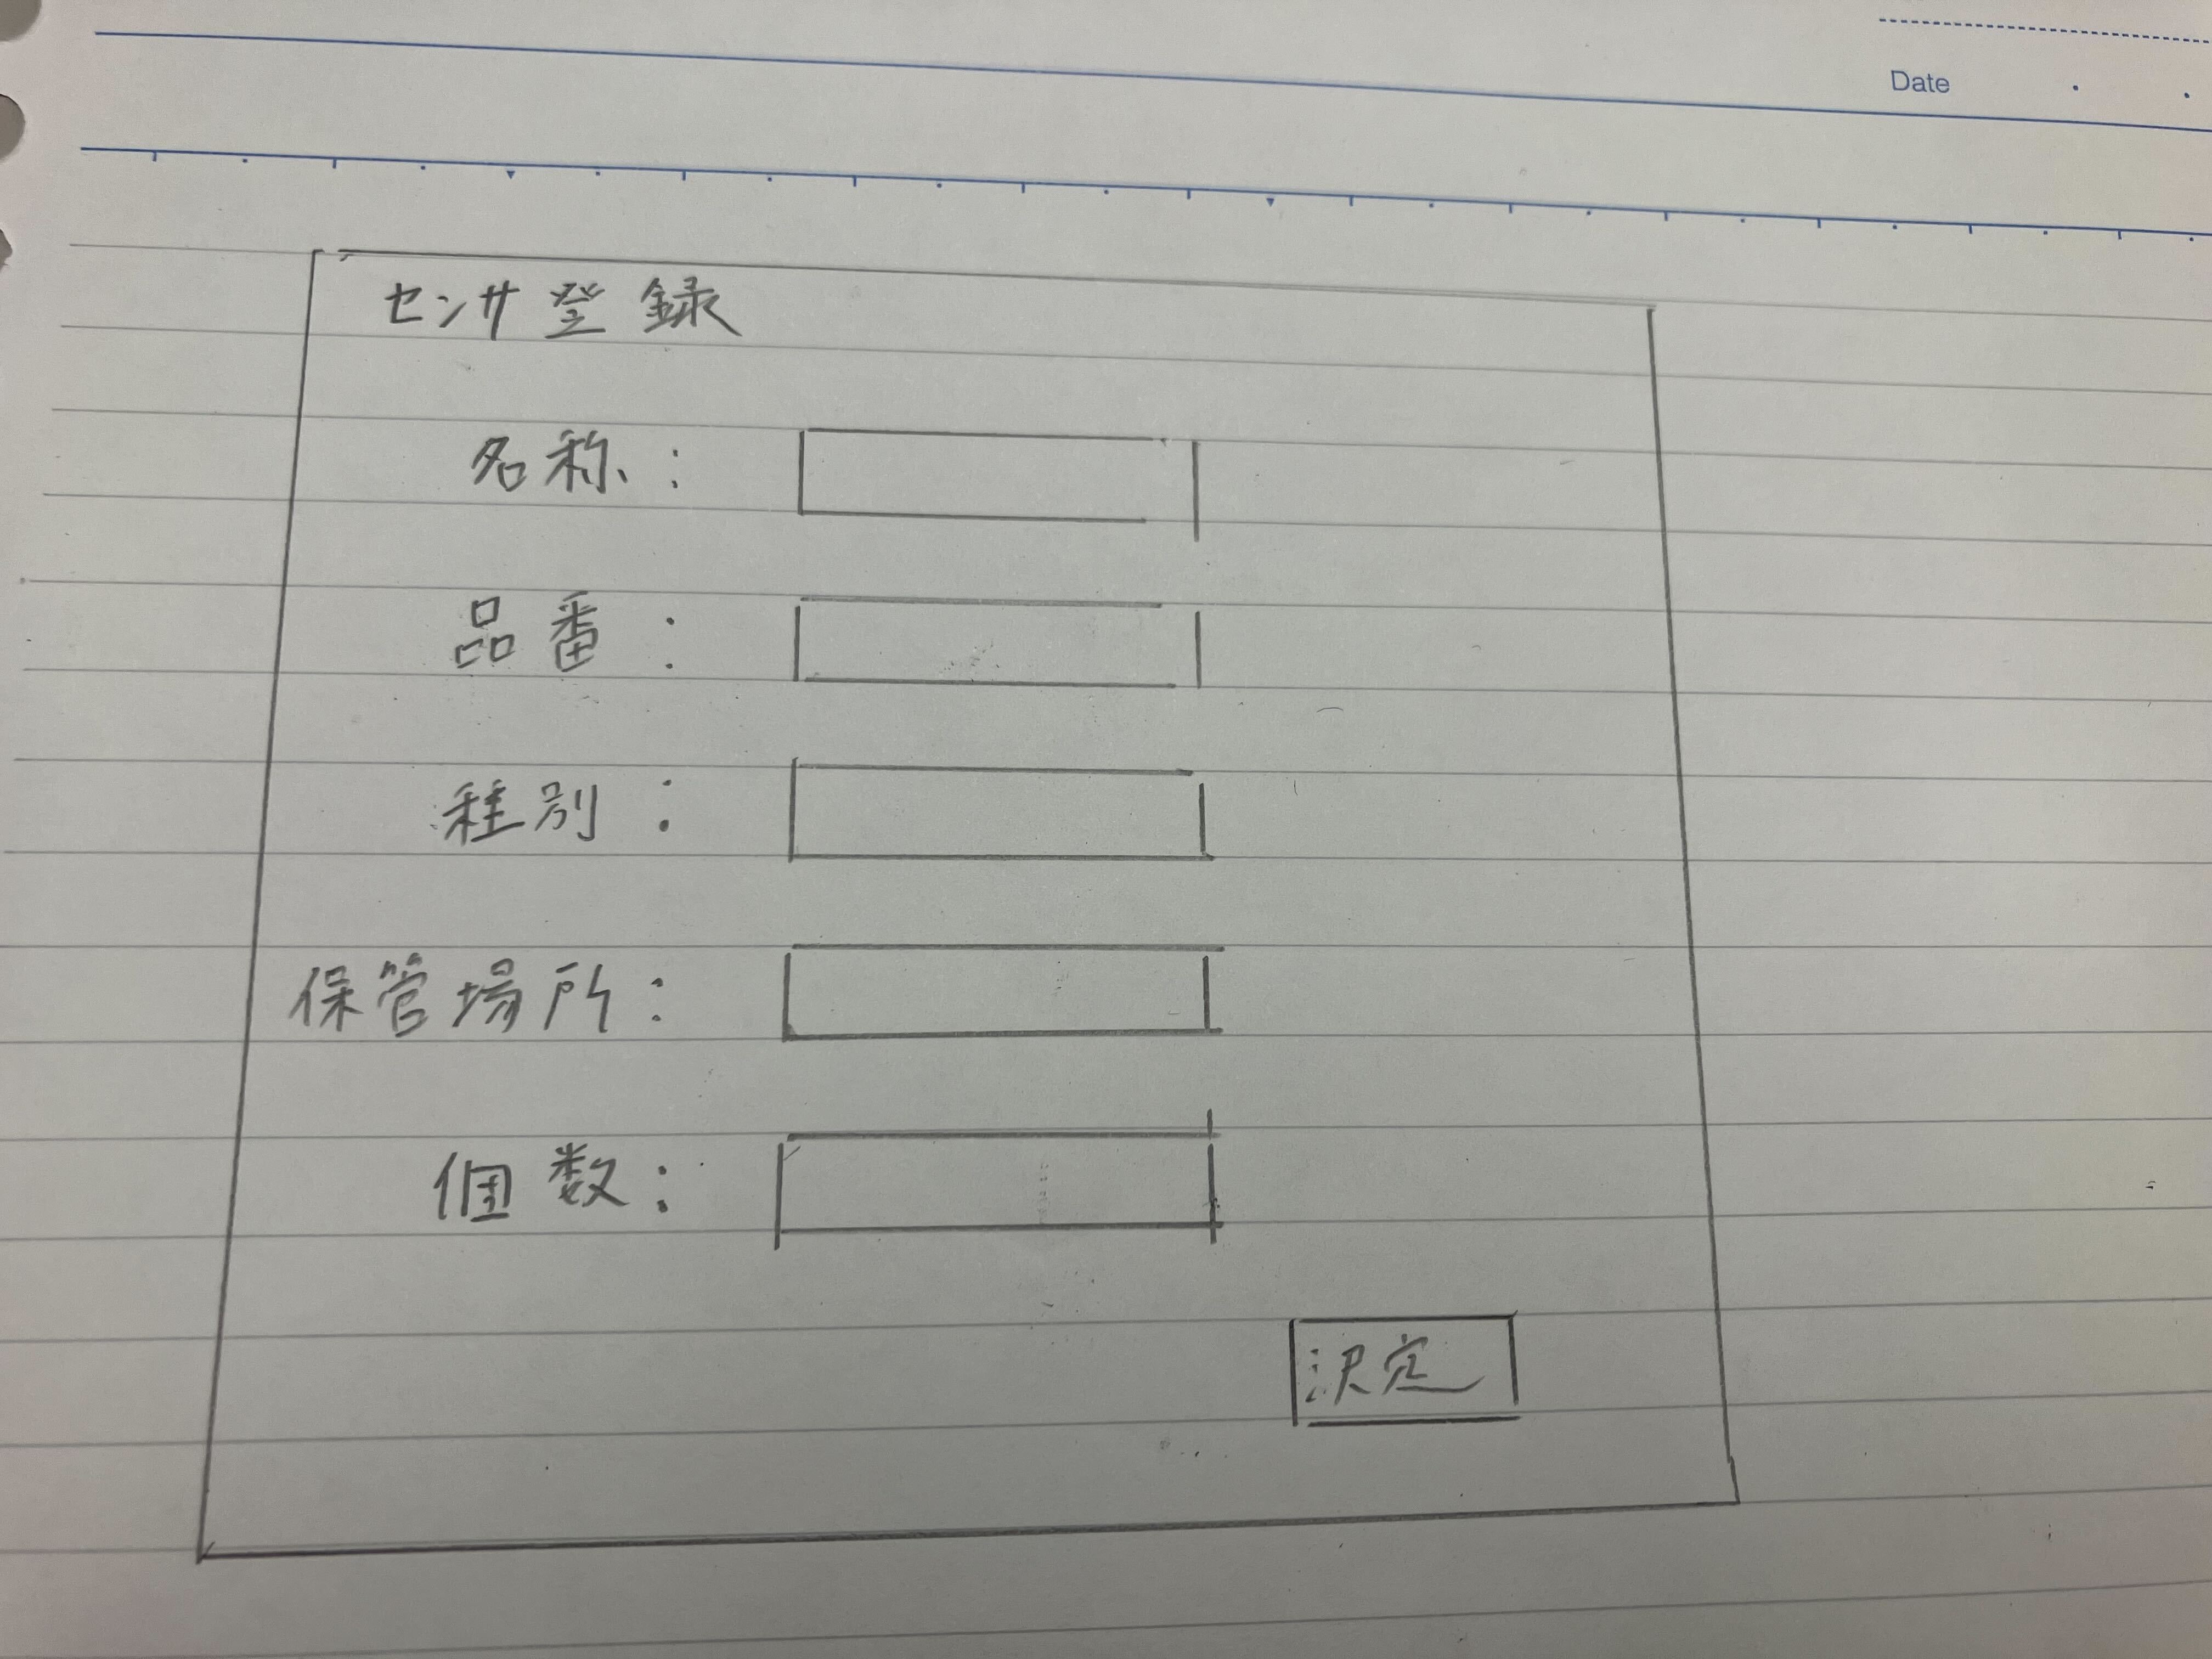 Date
センサ登録
名称:
品番:
種別:
保管場所:
個数:
決定